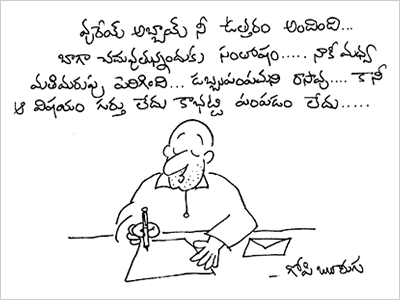 వురేయ్ అబ్బాయ్ నీ ఉత్తరం అందింది...
బాగా చదువుతున్నందుకు సంతోషం..... నాకీ మధ్య
మతిమరుపు పెరిగింది... డబ్బుపంపమని రాసావు.... కానీ
ఆ విషయం గుర్తు లేదు కాభట్టి పంపడం లేదు.....
గోపి బూరుగు